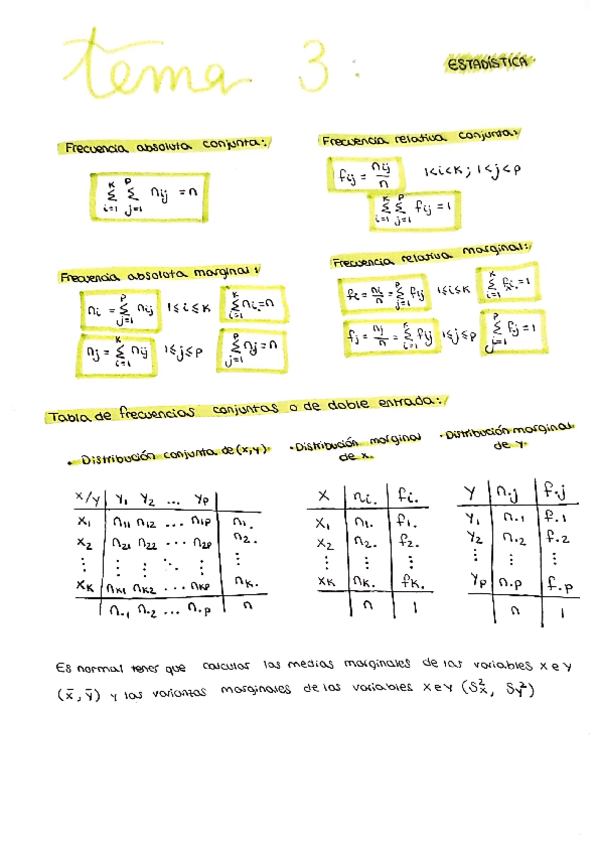 tema 3:
ESTADÍSTICA.
Frecuencia absoluta conjunta:
Σ(i=1..K) Σ(j=1..P) nij = n
Frecuencia relativa conjunta:
fij = nij/n   1<i<K; 1<j<P
Σ(i=1..K) Σ(j=1..P) fij = 1
Frecuencia absoluta marginal:
ni = Σ(j=1..P) nij   1≤i≤K   Σ(i=1..K) ni. = n
nj = Σ(i=1..K) nij   1≤j≤P   Σ(j=1..P) nj = n
Frecuencia relativa marginal:
fi = ni/n = Σ(j=1..P) fij   1≤i≤K   Σ(i=1..K) fi. = 1
fj = nj/n = Σ(i=1..K) fij   1≤j≤P   Σ(j=1..P) fj = 1
Tabla de frecuencias conjuntas o de doble entrada:
• Distribución conjunta de (x,y).
x/y y1 y2 ... yp
x1 n11 n12 ... n1p n1.
x2 n21 n22 ... n2p n2.
⋮ ⋮ ⋮ ⋱ ⋮ ⋮
xK nK1 nK2 ... nKp nK.
n.1 n.2 ... n.p n
• Distribución marginal
de x.
x ni. fi.
x1 n1. f1.
x2 n2. f2.
⋮ ⋮ ⋮
xK nK. fK.
n 1
• Distribución marginal
de y.
y n.j f.j
y1 n.1 f.1
y2 n.2 f.2
⋮ ⋮ ⋮
yp n.p f.p
n 1
Es normal tener que calcular las medias marginales de las variables x e y
(x̄, ȳ) y las varianzas marginales de las variables x e y (S²x, Sy²)